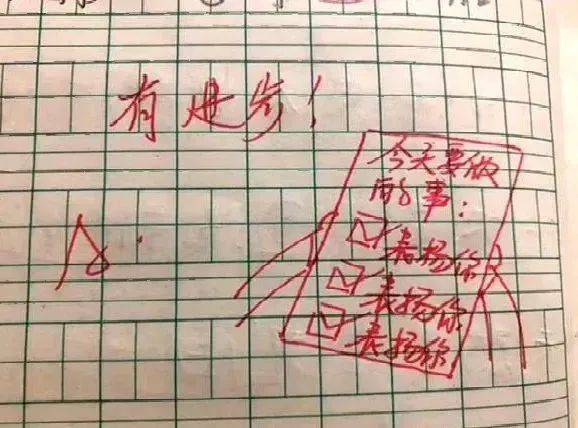 有进步！
A
今天要做
的事：
表扬你
表扬你
表扬你